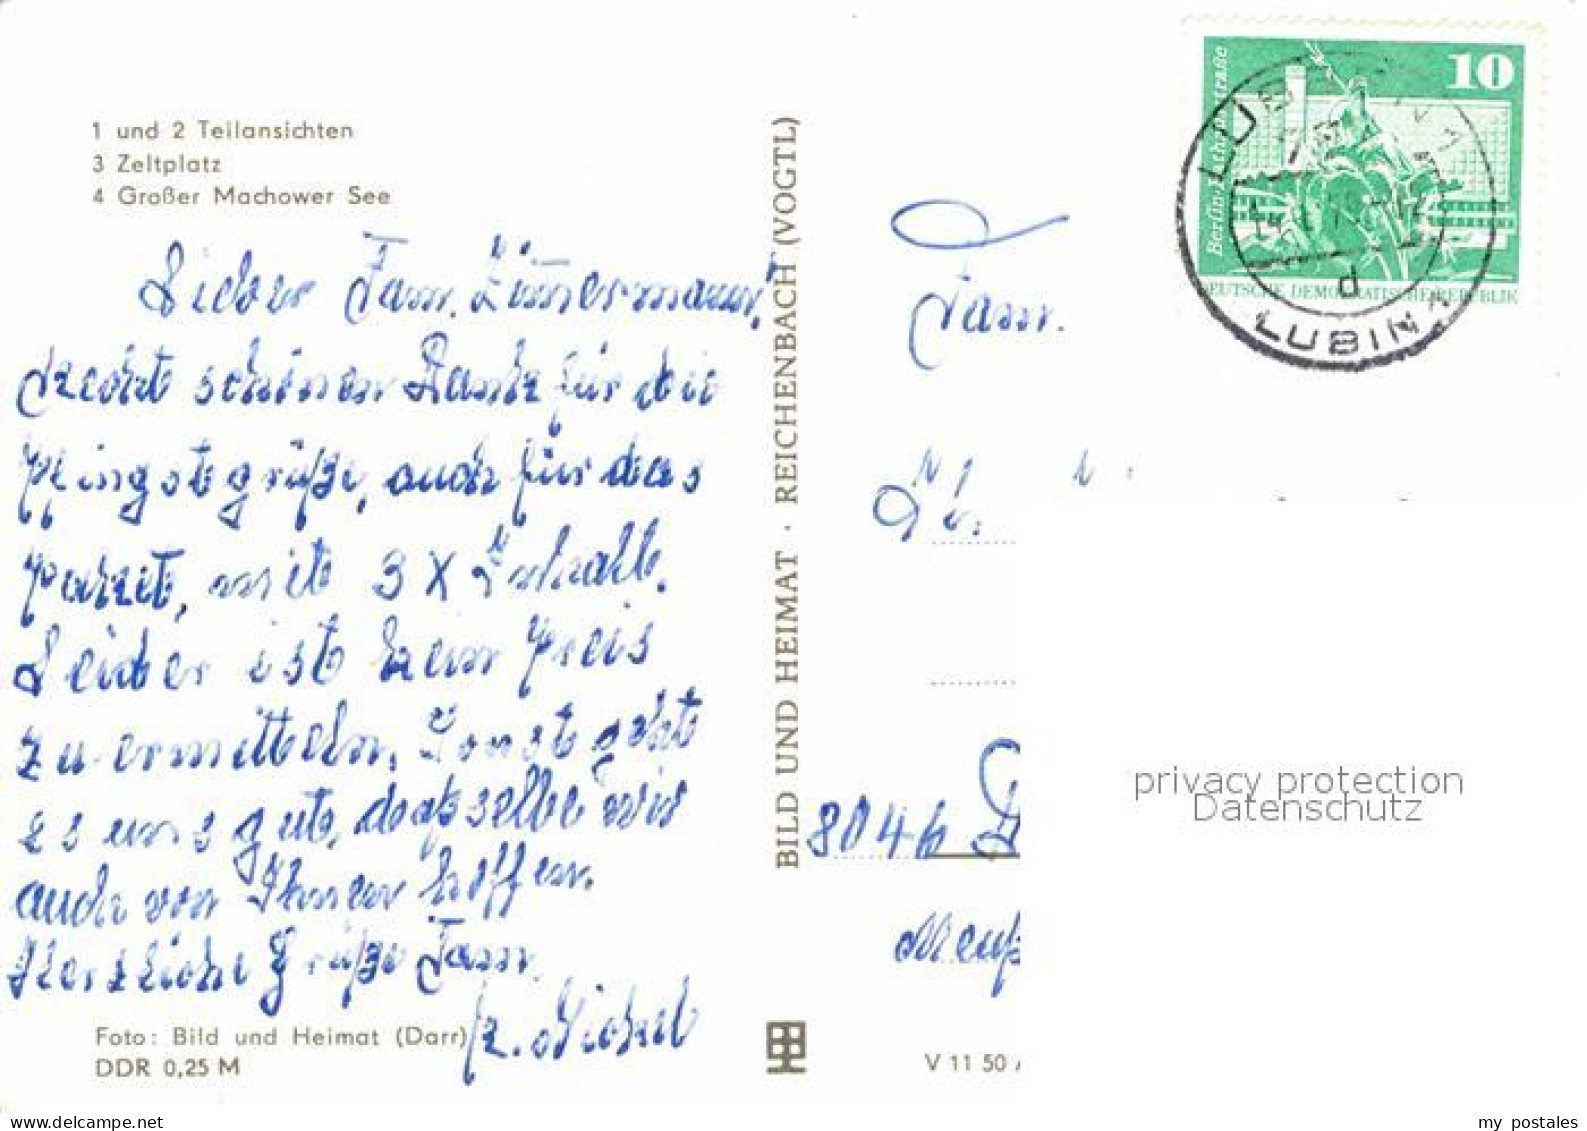 1 und 2 Teilansichten
3 Zeltplatz
4 Großer Machower See
Lieber Fam. Zimermann,
Recht schönen Dank für die
Pfingstgrüße, auch für das
Paket, mit 3 X Inhalt.
Leider ist kein Preis
zu ermitteln. Sonst geht
es uns gut, daßselbe wir
auch von Ihnen hoffen.
Herzliche Grüße Fam.
Foto: Bild und Heimat (Darr)
DDR 0,25 M
BILD UND HEIMAT · REICHENBACH (VOGTL)
10
Berlin,
DEUTSCHE DEMOKRATISCHE REPUBLIK
d
LUBIN
Fam.
8046 D
Meuß
V 11 50
privacy protection
Datenschutz
my postales